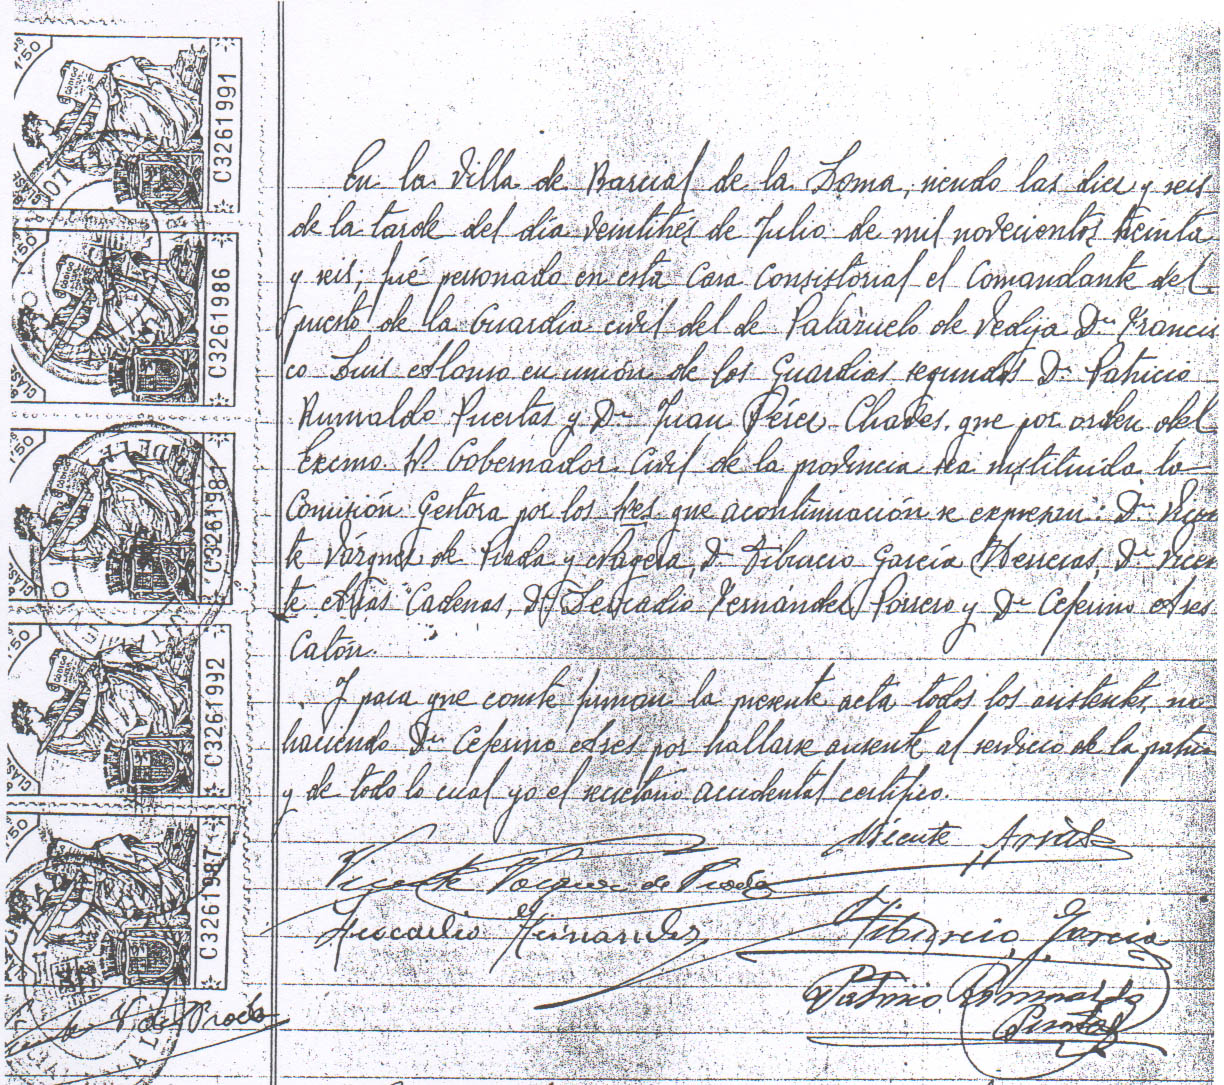 En la Villa de Barcial de la Loma, siendo las diez y seis
de la tarde del día veintitrés de Julio de mil novecientos treinta
y seis; fué personado en esta Casa Consistorial el Comandante del
puesto de la Guardia civil del de Palazuelo de Vedija Dn Francis
co Luis Alonso en unión de los Guardias segundos Dn Patricio
Rumualdo Puertas y Dn Juan Pérez Chaves, que por orden del
Excmo. Sr. Gobernador Civil de la provincia sea instituida la
Comisión Gestora por los tres que acontinuación se expresan: Dn Vicen
te Vázquez de Prada y, Dn Tiburcio García Dn Vicen
te Arias Cadenas, Dn Leocadio Fernández Porrero y Dn Ceferino Ares
Catón.
Y para que conste firman la presente acta todos los asistentes, no
haciendo Dn Ceferino Ares por hallarse ausente al servicio de la patria
y de todo lo cual yo el secretario accidental certifico.
Vicente Arias
Vicente Vazquez de Prada
Leocadio Fernandez
Tiburcio Garcia
Patricio Rumualdo
Puertas
V. de Prada
C3261991
C3261986
C3261981
C3261992
C3261987
1'50
CLASE